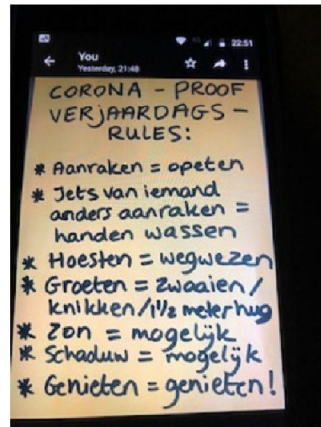 22:51
You
Yesterday, 21:48
CORONA - PROOF
VERjAARDAGS -
RULES:
* Aanraken = opeten
* Iets van iemand
anders aanraken =
handen wassen
* Hoesten = wegwezen
* Groeten = zwaaien /
knikken/1½ meter hug
* Zon = mogelijk
* Schaduw = mogelijk
* Genieten = genieten!